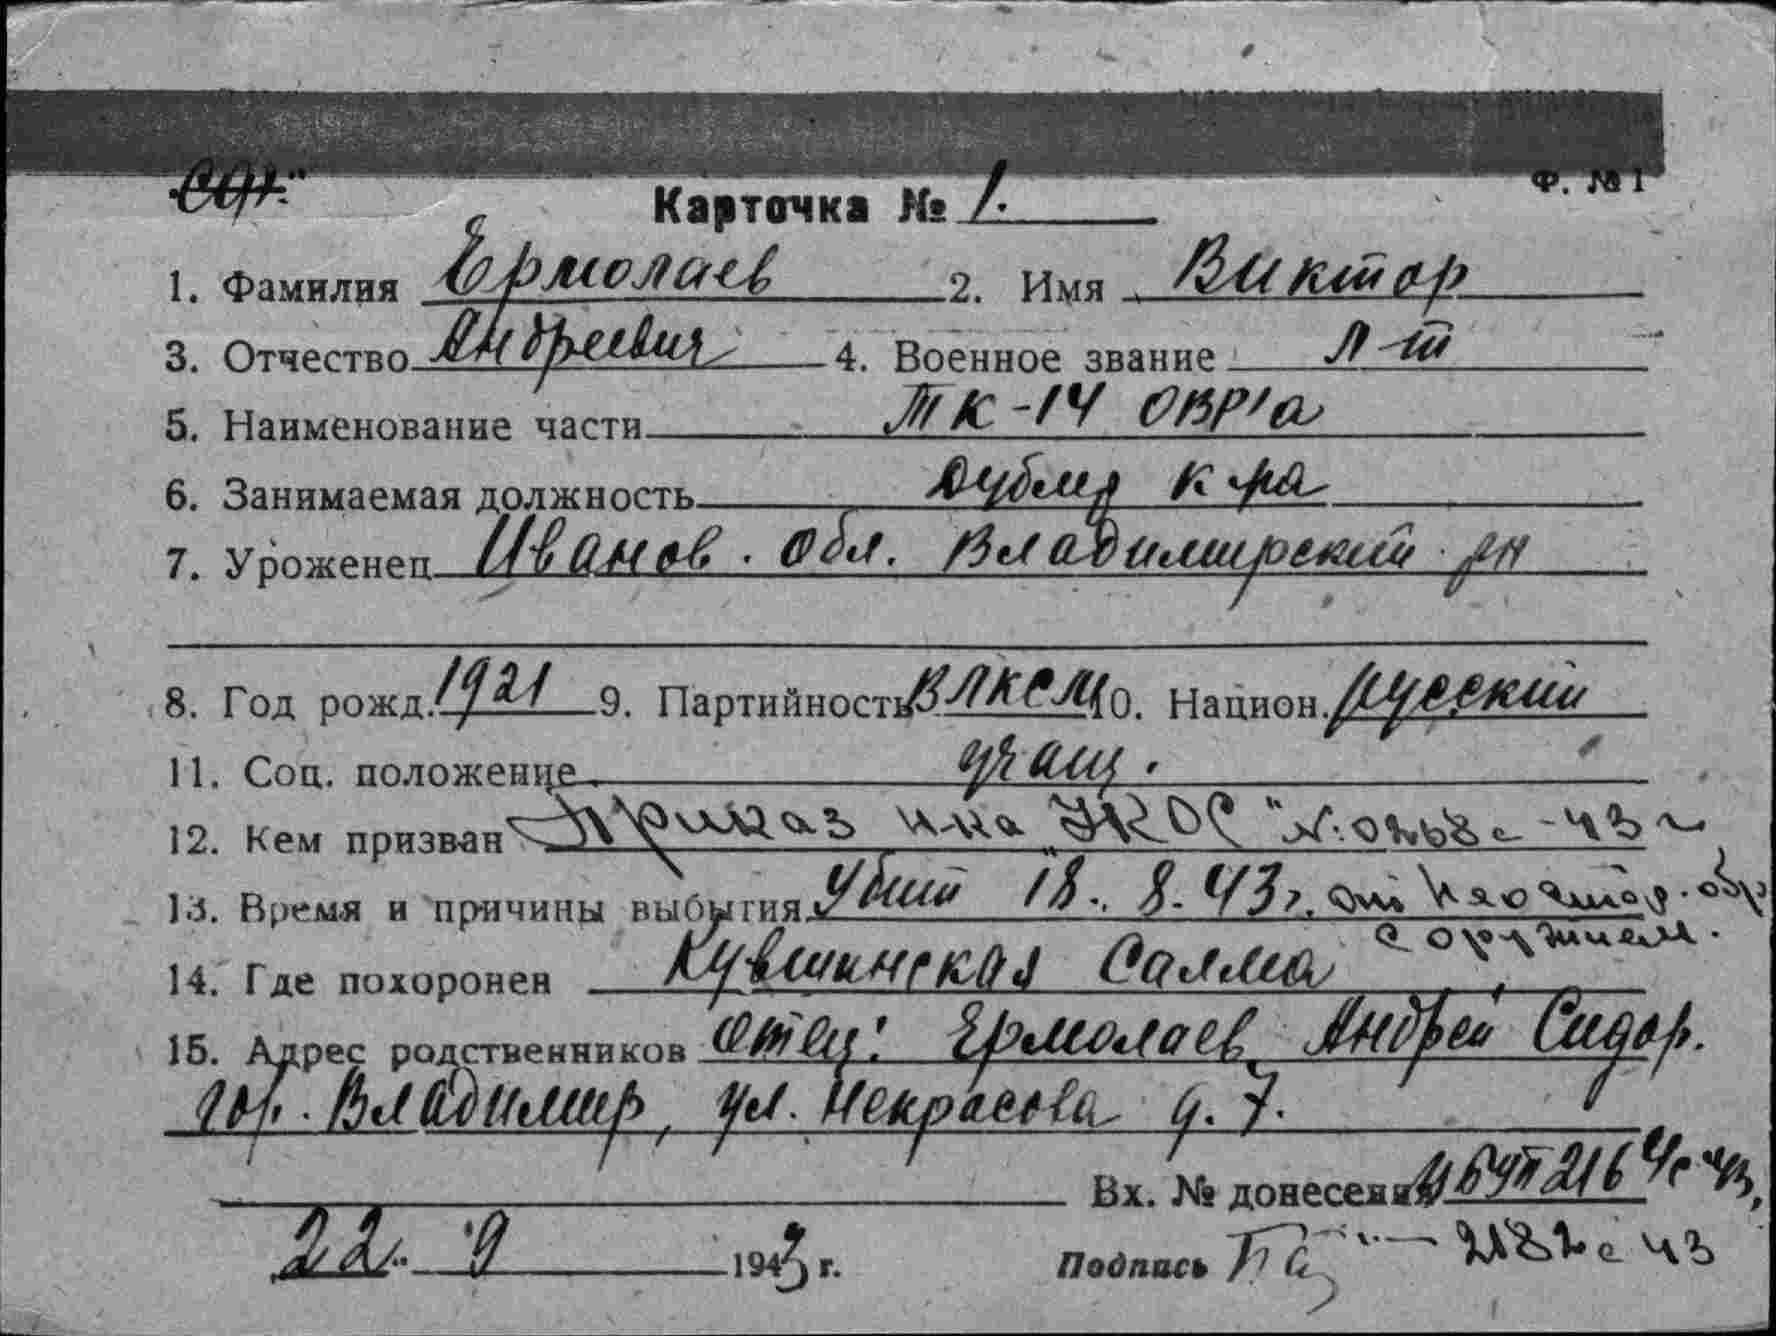 Ф. № 1
Карточка № 1.
1. Фамилия Ермолаев 2. Имя Виктор
3. Отчество Андреевич 4. Военное звание л-т
5. Наименование части ТК-14 ОВР'а
6. Занимаемая должность дублер к-ра
7. Уроженец Иванов. обл. Владимирский рн
8. Год рожд. 1921 9. Партийность ВЛКСМ 10. Национ. русский
11. Соц. положение учащ.
12. Кем призван Приказ н-ка УКОС - 43 г
13. Время и причины выбытия Убит 18. 8. 43 г. от неостор. обр
с оружием.
14. Где похоронен Кувшинская Салма
15. Адрес родственников отец: Ермолаев Андрей Сидор.
гор. Владимир, ул. Некрасова д. 7.
Вх. № донесения 216
22. 9 1943 г. Подпись 2182 с 43